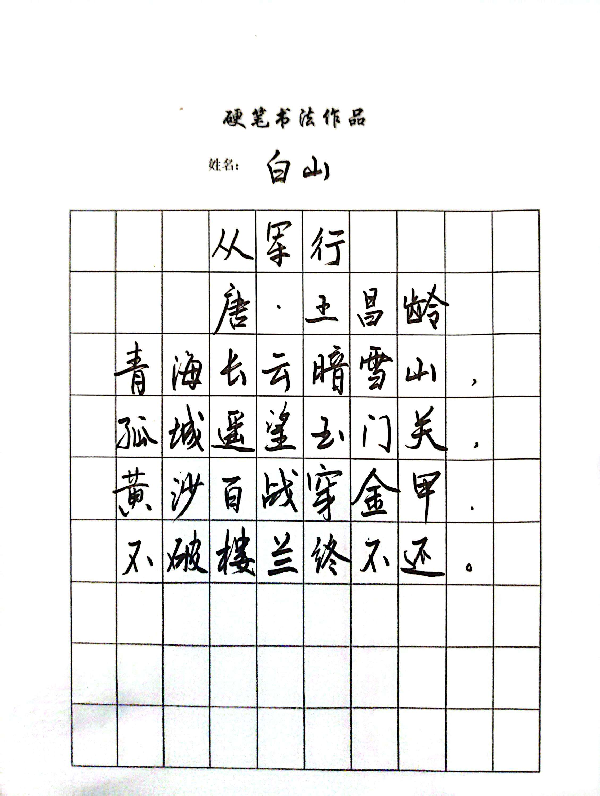 硬笔书法作品
姓名：白山
从军行
唐·王昌龄
青海长云暗雪山，
孤城遥望玉门关，
黄沙百战穿金甲.
不破楼兰终不还。